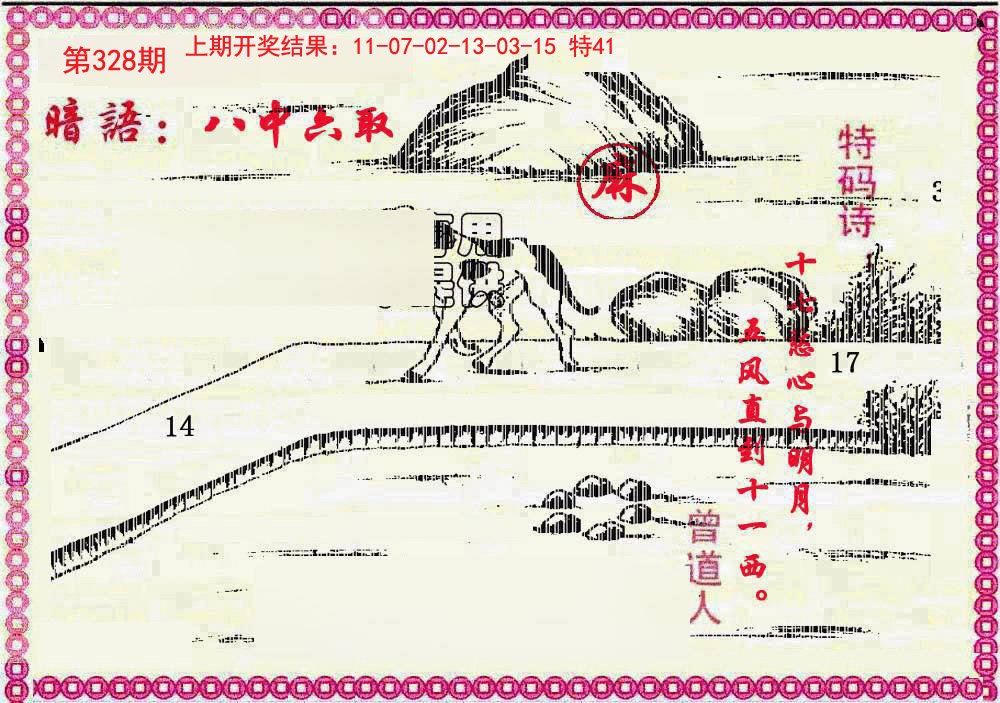 第328期
上期开奖结果：11-07-02-13-03-15 特41
暗語：八中六取
麻
特码诗
十七慈心与明月，
五风直到十一西。
曾道人
17
14